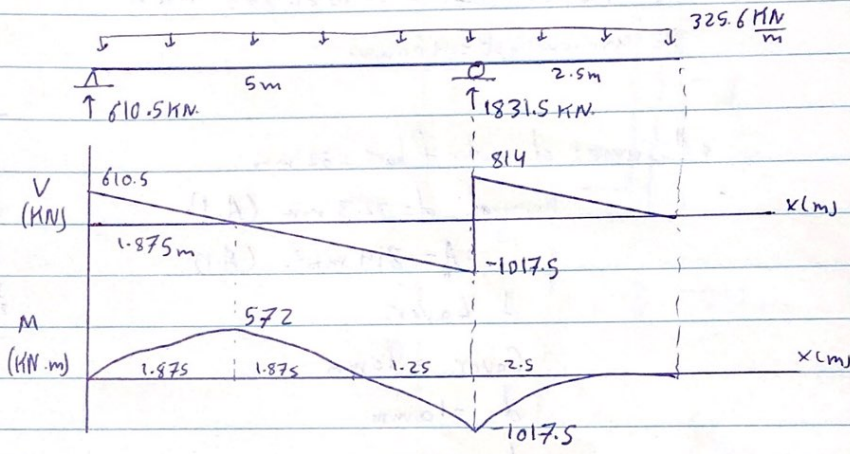 325.6 KN/m
5m
2.5m
↑ 610.5KN.
↑ 1831.5 KN.
V
(KN)
610.5
814
x(m)
1.875m
-1017.5
M
(KN.m)
572
1.875
1.875
1.25
2.5
x(m)
-1017.5